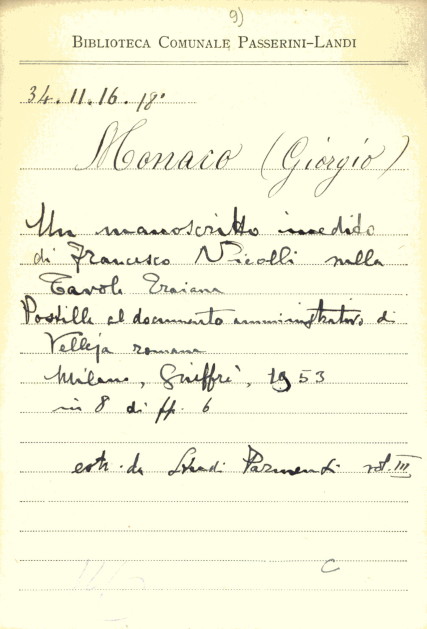 9)
BIBLIOTECA COMUNALE PASSERINI-LANDI
34.11.16.18°
Monaco (Giorgio)
Un manoscritto inedito
di Francesco Nicolli sulla
Tavola Traiana
Postille al documento amministrativo di
Velleja romana
Milano, Giuffrè, 1953
in 8 di pp. 6
estr. da Studi Parmensi vol. III
C